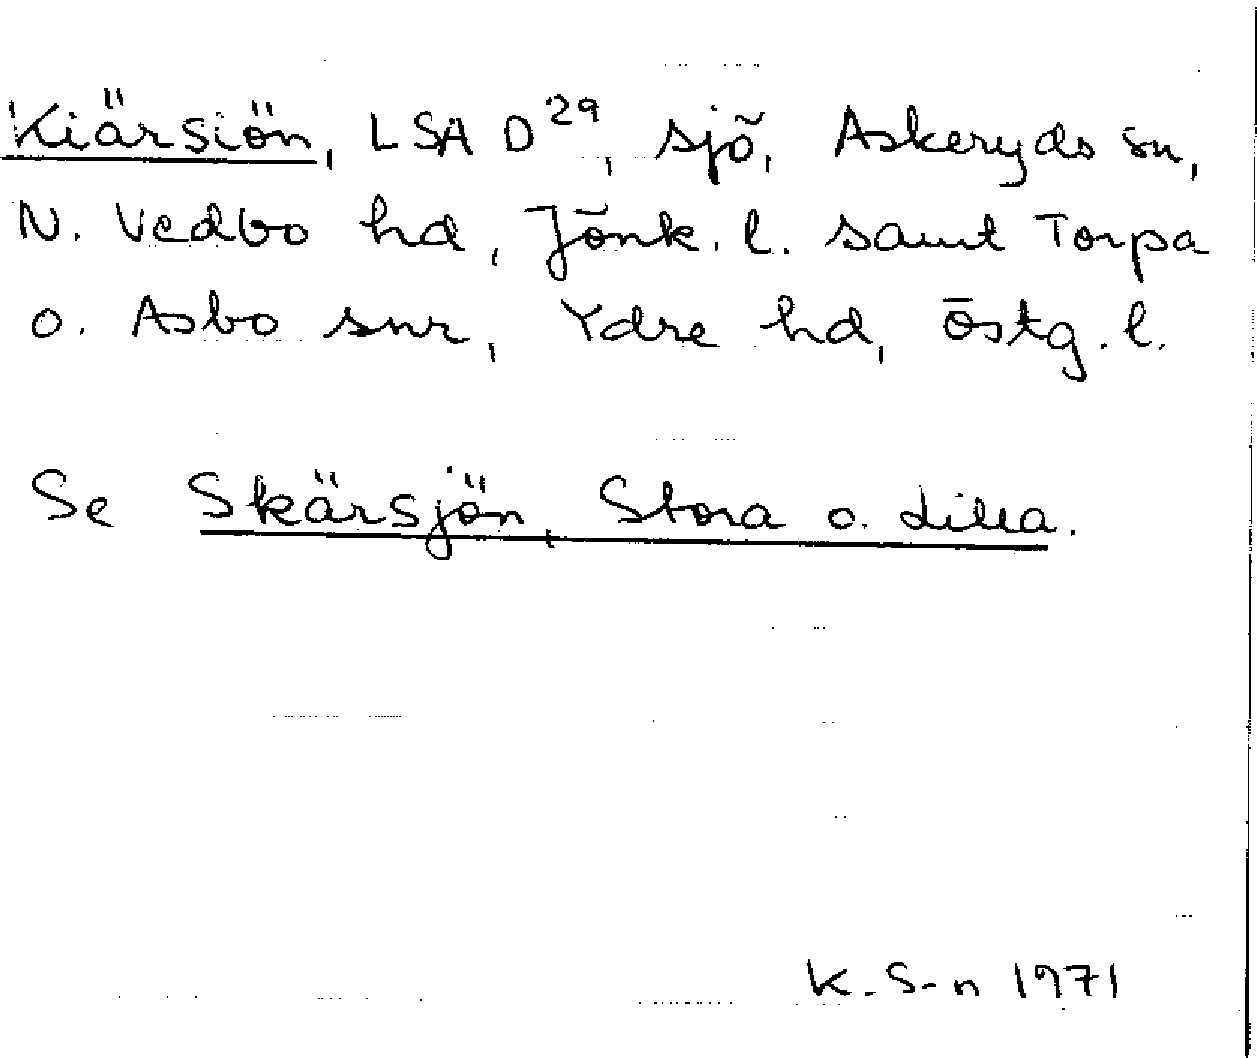 Kiärsiön, LSA D29, sjö, Askeryds sn,
N. Vedbo hd, Jönk. l. samt Torpa
o. Asbo snr, Ydre hd, Östg. l.
Se Skärsjön, Stora o. Lilla.
K. S-n 1971